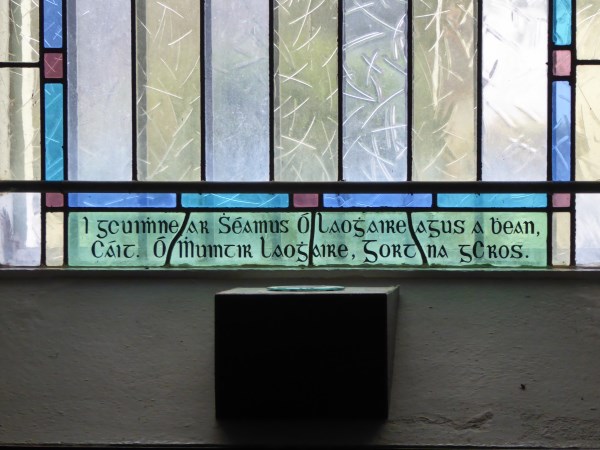 I gcuiṁne ar Ṡéamus Ó Laoġaire agus a ḃean,
Cáit. Ó Ṁuintir Laoġaire, Gort na gCros.